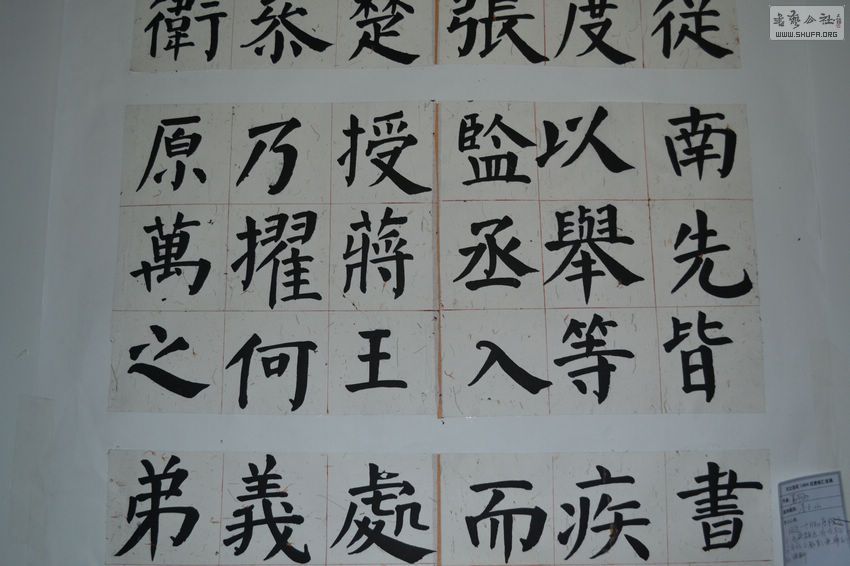 從南先皆書
度以舉等疾
張監丞入而
楚授蔣王處
乃擢何義
衛原萬之弟
書藝公社
WWW.SHUFA.ORG